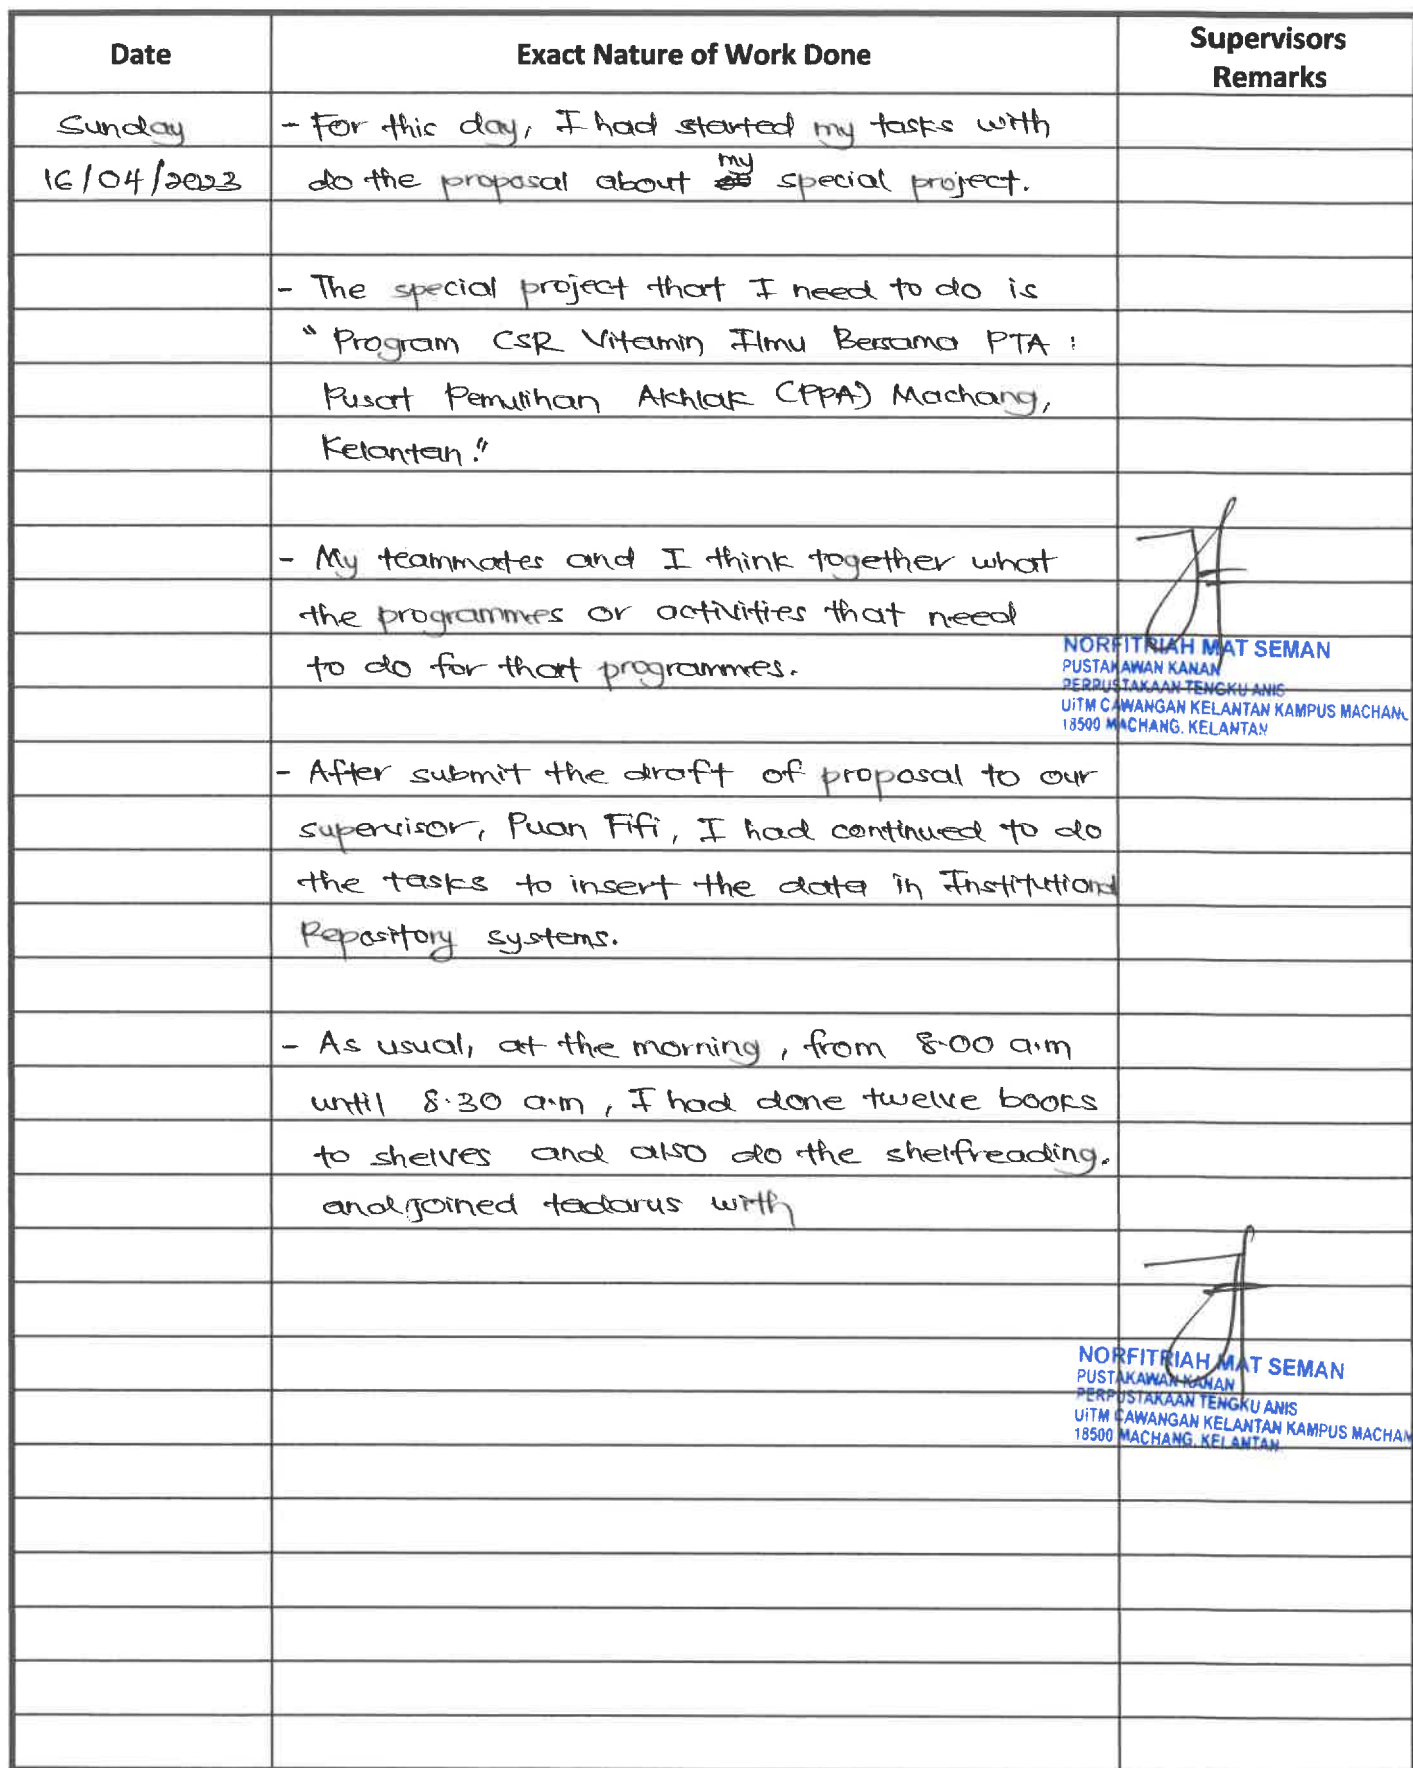 Date
Exact Nature of Work Done
Supervisors
Remarks
Sunday
16/04/2023
- For this day, I had started my tasks with
do the proposal about my special project.
- The special project that I need to do is
" Program CSR Vitamin Ilmu Bersama PTA :
Pusat Pemulihan Akhlak (PPA) Machang,
Kelantan."
- My teammates and I think together what
the programmes or activities that need
to do for that programmes.
NORFITRIAH MAT SEMAN
PUSTAKAWAN KANAN
PERPUSTAKAAN TENGKU ANIS
UiTM CAWANGAN KELANTAN KAMPUS MACHANG
18500 MACHANG, KELANTAN
- After submit the draft of proposal to our
supervisor, Puan Fifi, I had continued to do
the tasks to insert the data in Institutional
Repository systems.
- As usual, at the morning, from 8.00 a.m
until 8.30 a.m, I had done twelve books
to shelves and also do the shelfreading.
and joined tadarus with
NORFITRIAH MAT SEMAN
PUSTAKAWAN KANAN
PERPUSTAKAAN TENGKU ANIS
UiTM CAWANGAN KELANTAN KAMPUS MACHAN
18500 MACHANG, KELANTAN